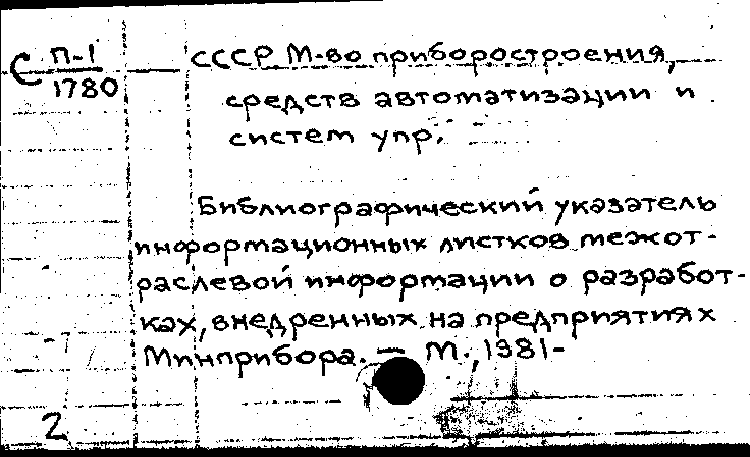 С П-1
1780
СССР М-во приборостроения,
средств автоматизации и
систем упр.
Библиографический указатель
информационных листков межот-
раслевой информации о разработ-
ках, внедренных на предприятиях
Минприбора. — М., 1981-
2